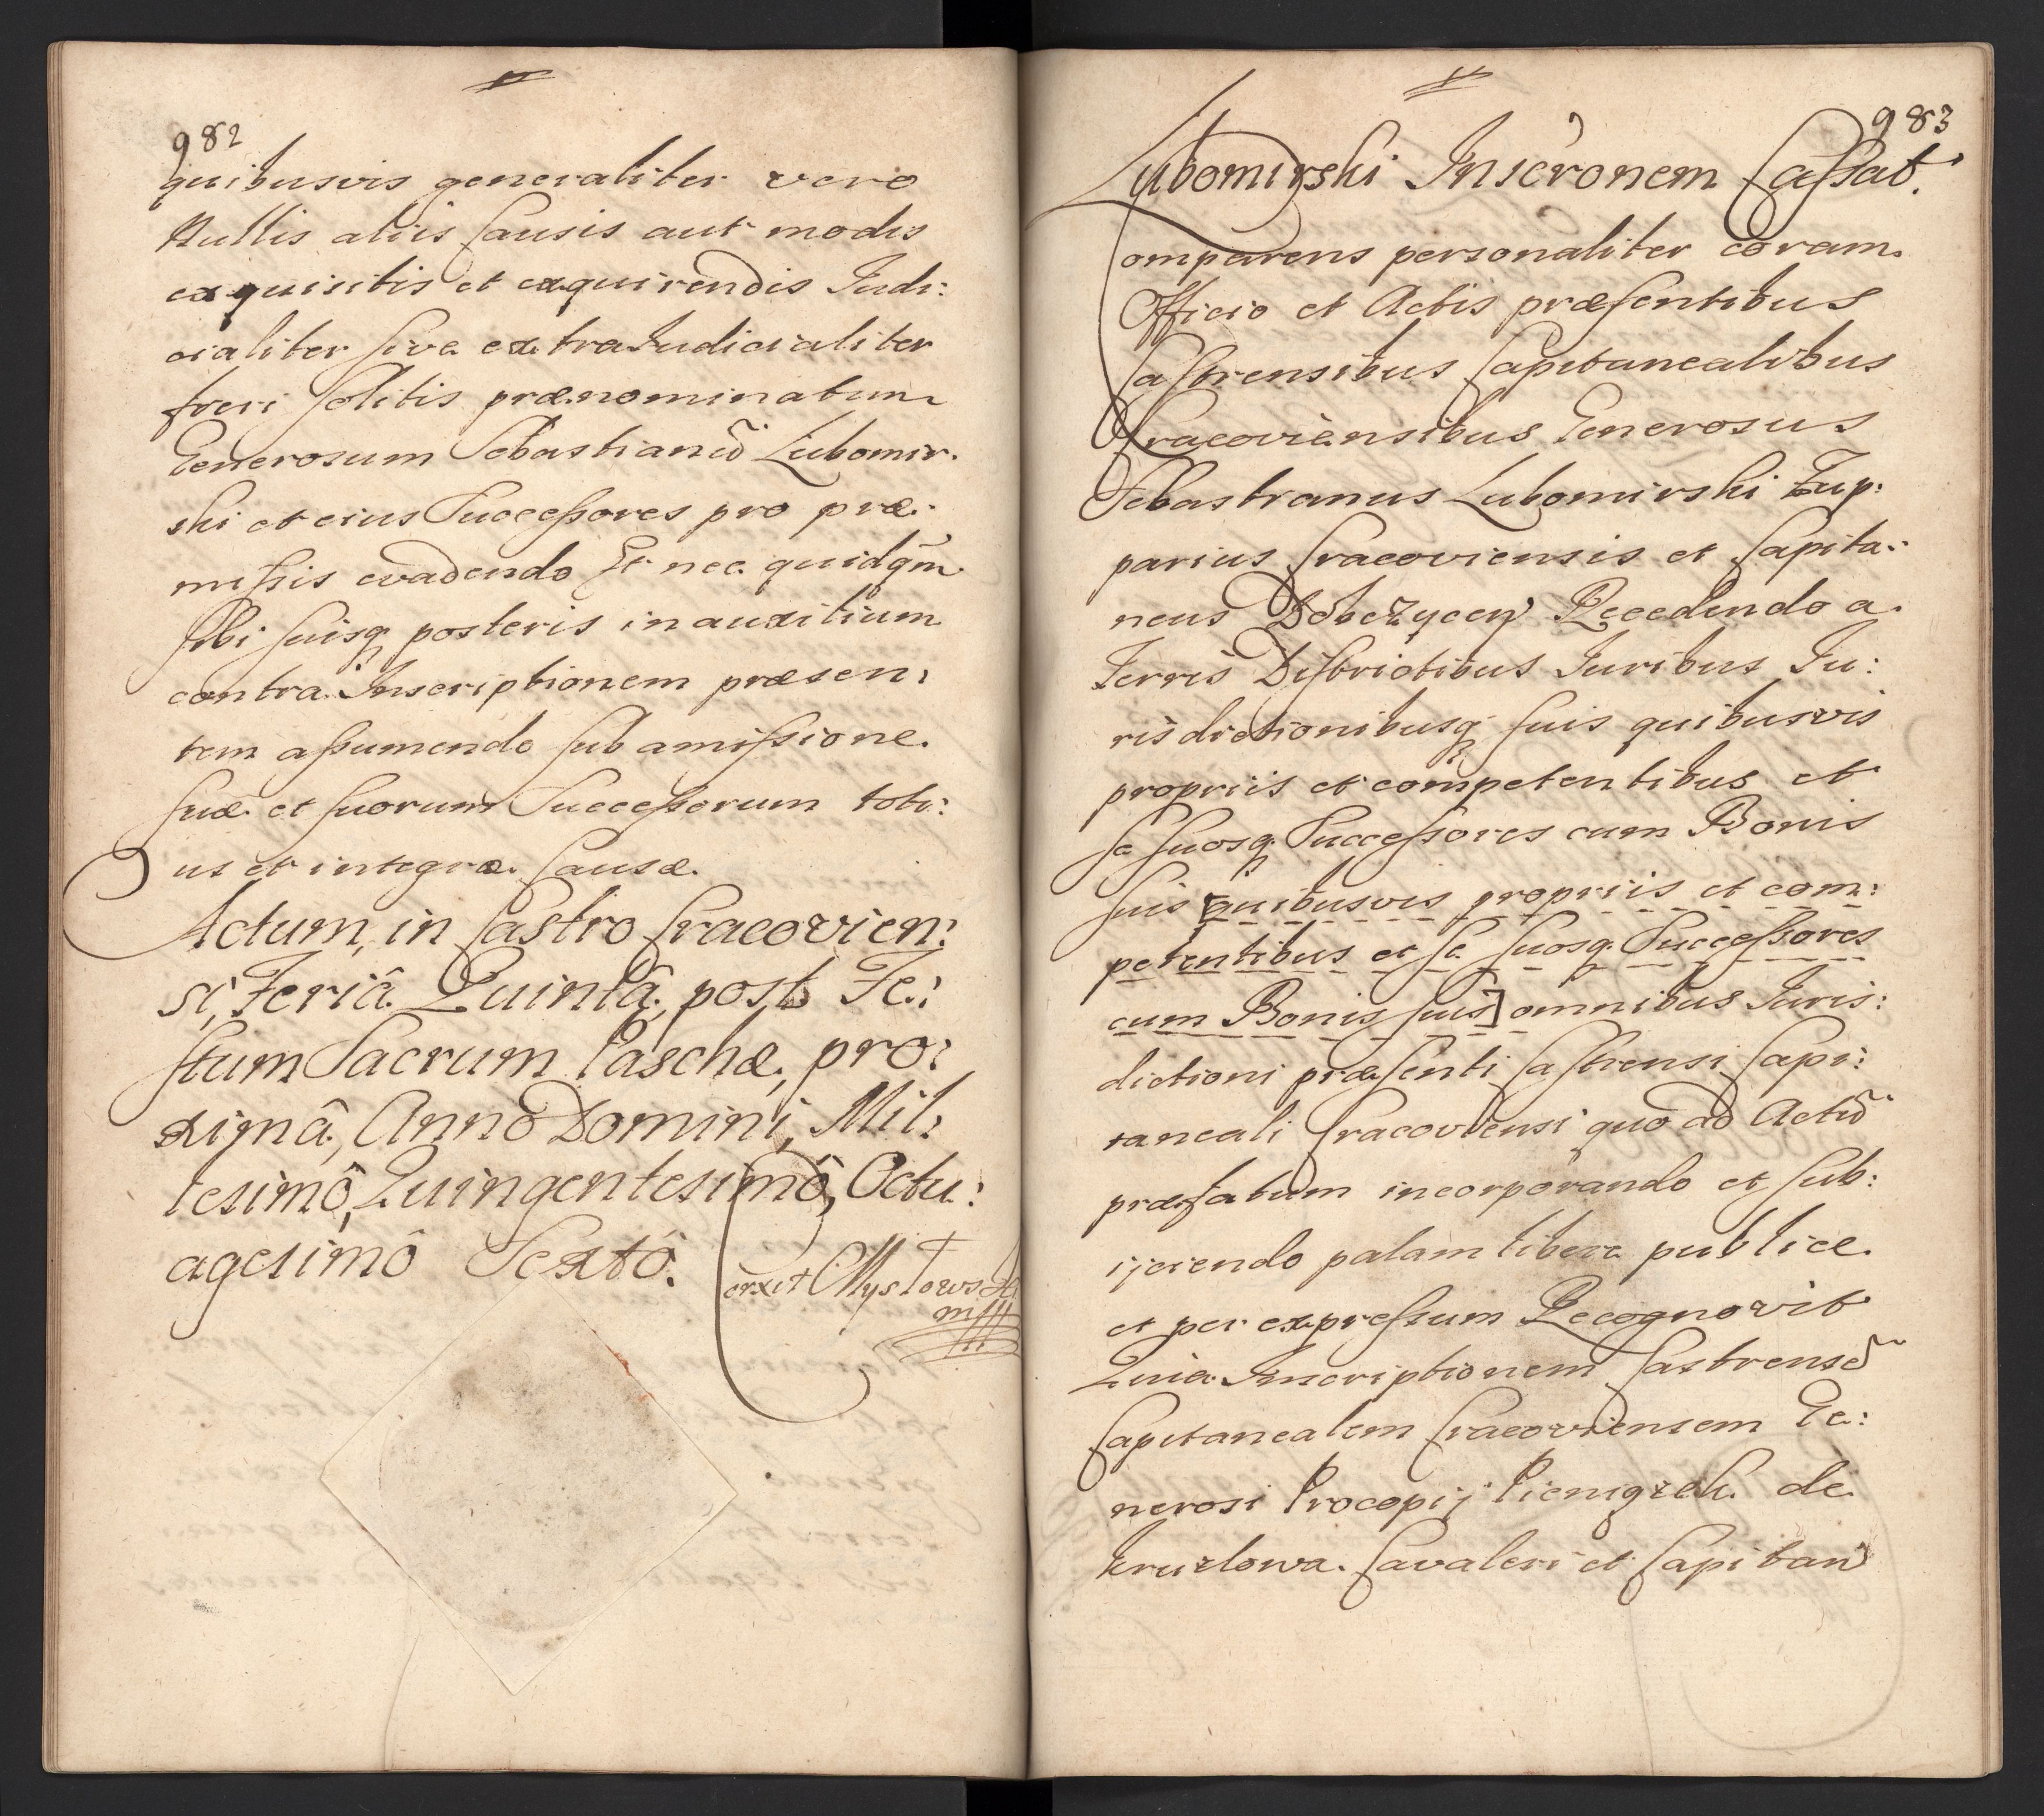 982
quibusvis generaliter vero
Nullis aliis Causis aut modis
exquisitis et exquirendis Judi:
cialiter sive extraJudicialiter
fieri solitis prænominatum
Generosum Sebastianū Lubomir:
ski et eius Successores pro præ:
missis evadendo Et nec quidqm̃
sibi suisq posteris in auxilium
contra Inscriptionem præsen:
tem assumendo sub amissione
suæ et suorum Successorum toti:
us et integræ Causæ.
Actum, in Castro Cracovien:
si, Feriâ Quintâ, post Fe:
stum Sacrum Paschæ, pro:
ximâ, Anno Domini, Mil:
lesimô, Quingentesimô, Octu:
agesimô Sextô.
983
Lubomirski Inscr̃onem Cassat.
Comparens personaliter coram
Officio et Actis præsentibus
Castrensibus Capitanealibus
Cracoviensibus Generosus
Sebastianus Lubomirski Zup:
parius Cracoviensis et Capita:
neus Dobczycen Recedendo a
Terris Districtibus Juribus Ju:
risdictionibusq suis quibusvis
propriis et competentibus et
se suosq Successores cum Bonis
suis [quibusvis propriis et com:
petentibus et se suosq Successores
cum Bonis suis] omnibus Juris:
dictioni præsenti Castrensi Capi:
taneali Cracoviensi quo ad Actū
præfatum incorporando et sub:
ijciendo palam libere publice
et per expressum Recognovit
Quia Inscriptionem Castrensē
Capitanealem Cracoviensem Ge:
nerosi Procopij Pieniążek de
Kruzlowa Cavaleri et Capitan